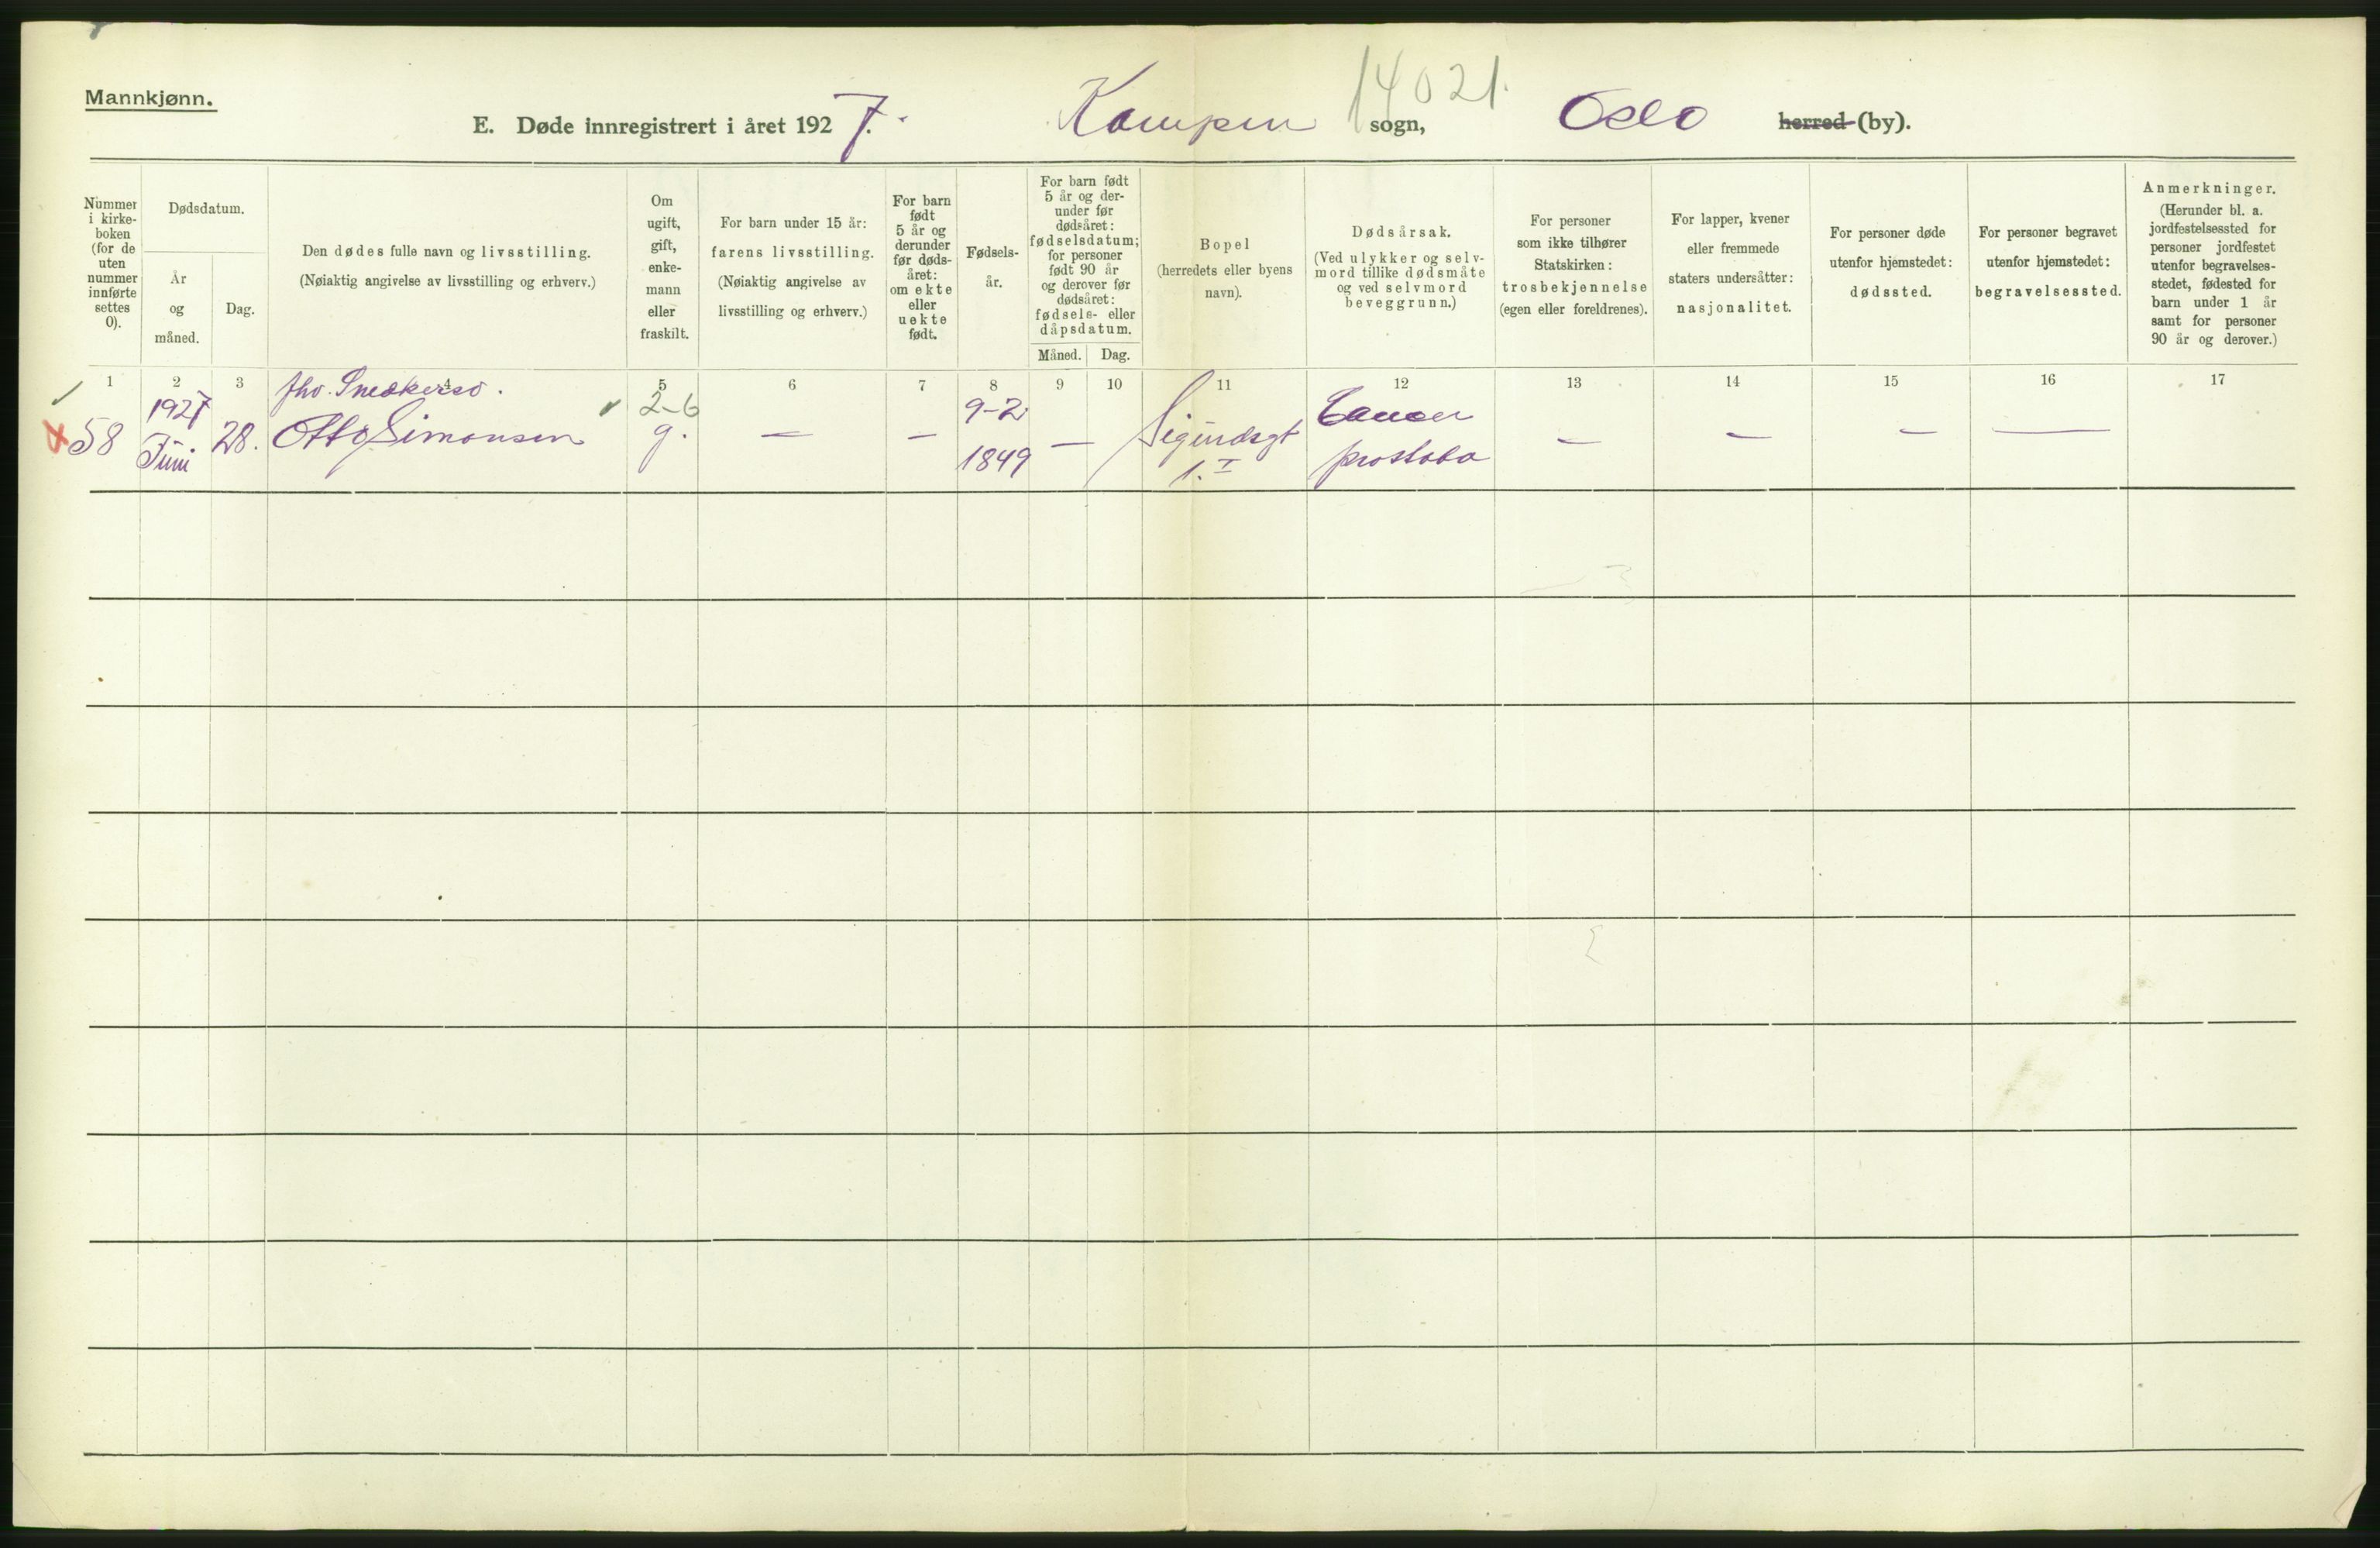 Mannkjønn.
14021.
E. Døde innregistrert i året 1927. Kampen sogn, Oslo herred (by).
Nummer i kirke-boken (for de uten nummer innførte settes 0).
Dødsdatum.
År og måned.
Dag.
Den dødes fulle navn og livsstilling.
(Nøiaktig angivelse av livsstilling og erhverv.)
Om ugift, gift, enke-mann eller fraskilt.
For barn under 15 år:
farens livsstilling.
(Nøiaktig angivelse av
livsstilling og erhverv.)
For barn født 5 år og derunder før døds-året: om ekte eller uekte født.
Fødsels-år.
For barn født 5 år og der-under før dødsåret: fødselsdatum; for personer født 90 år og derover før dødsåret: fødsels- eller dåpsdatum.
Måned. Dag.
Bopel
(herredets eller byens
navn).
Dødsårsak.
(Ved ulykker og selv-
mord tillike dødsmåte
og ved selvmord
beveggrunn.)
For personer
som ikke tilhører
Statskirken:
trosbekjennelse
(egen eller foreldrenes).
For lapper, kvener
eller fremmede
staters undersåtter:
nasjonalitet.
For personer døde
utenfor hjemstedet:
dødssted.
For personer begravet
utenfor hjemstedet:
begravelsessted.
Anmerkninger.
(Herunder bl. a.
jordfestelsessted for
personer jordfestet
utenfor begravelses-
stedet, fødested for
barn under 1 år
samt for personer
90 år og derover.)
1 2 3 4 5 6 7 8 9 10 11 12 13 14 15 16 17
58
1927
Juni
28.
fhv.
Otto Simonsen
2-6
g.
—
—
9-2
1849
—
1. I
Cancer
prostata
—
—
—
—